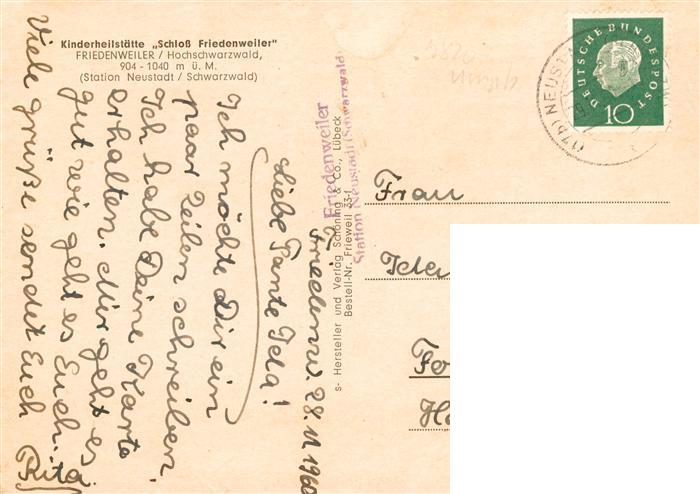 Kinderheilstätte „Schloß Friedenweiler"
FRIEDENWEILER / Hochschwarzwald,
904 - 1040 m ü. M.
(Station Neustadt / Schwarzwald)
Friedenw. 28.11.1960
Liebe Tante Ida!
Ich möchte Dir ein
paar Zeilen schreiben.
Ich habe Deine Karte
erhalten. Mir geht es
gut wie geht es Euch.
Viele grüße sendet Euch
Rita.
s- Hersteller und Verlag Schöning & Co., Lübeck
Bestell-Nr. Frieweil 33-1
Friedenweiler
Station Neustadt (Schwarzwald)
DEUTSCHE BUNDESPOST
10
(17b) NEUSTA
Frau
Ida